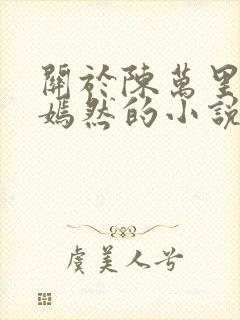 關於陳萬里
嫣然的小說
虞美人兮